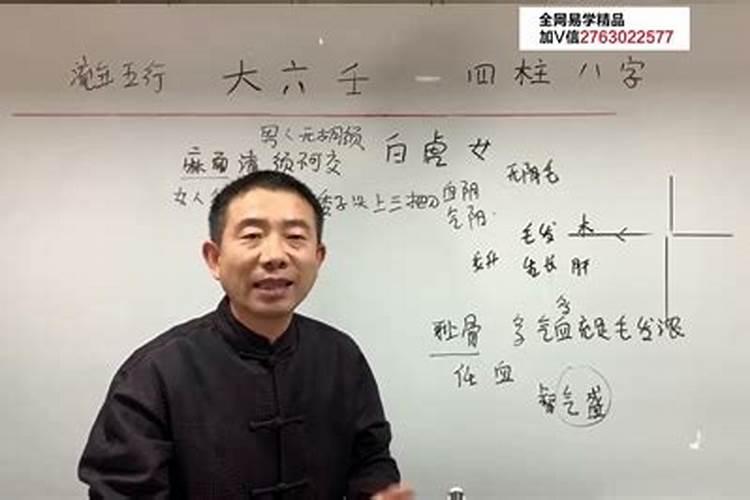 全网易学精品
加V信2763022577
流年五行 大六壬 — 四柱八字
男人无胡须
麻面清须不可交 白虎女
无阴毛
女人 子头上三把刀
血阴
气阴
毛发 木
生长 肝
耻骨 多气血充足毛发浓
任 血
气盛